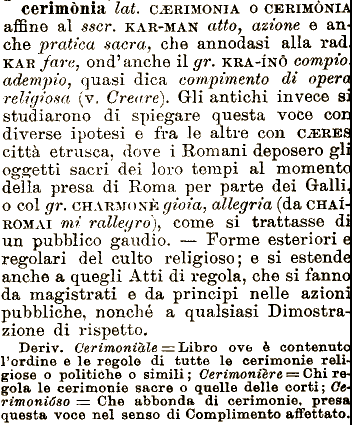 cerimònia lat. CÆRIMONIA o CERIMÒNIA
affine al sscr. KAR-MAN atto, azione e an-
che pratica sacra, che annodasi alla rad.
KAR fare, ond'anche il gr. KRA-ÍNÔ compio
adempio, quasi dica compimento di opera
religiosa (v. Creare). Gli antichi invece si
studiarono di spiegare questa voce con
diverse ipotesi e fra le altre con CÆRES
città etrusca, dove i Romani deposero gli
oggetti sacri dei loro tempi al momento
della presa di Roma per parte dei Galli,
o col gr. CHARMONÈ gioia, allegria (da CHAÍ-
ROMAI mi rallegro), come si trattasse di
un pubblico gaudio. — Forme esteriori e
regolari del culto religioso; e si estende
anche a quegli Atti di regola, che si fanno
da magistrati e da principi nelle azioni
pubbliche, nonché a qualsiasi Dimostra-
zione di rispetto.
Deriv. Cerimoniàle = Libro ove è contenuto
l'ordine e le regole di tutte le cerimonie reli-
giose o politiche o simili; Cerimonière = Chi re-
gola le cerimonie sacre o quelle delle corti; Ce-
rimonióso = Che abbonda di cerimonie, presa
questa voce nel senso di Complimento affettato.